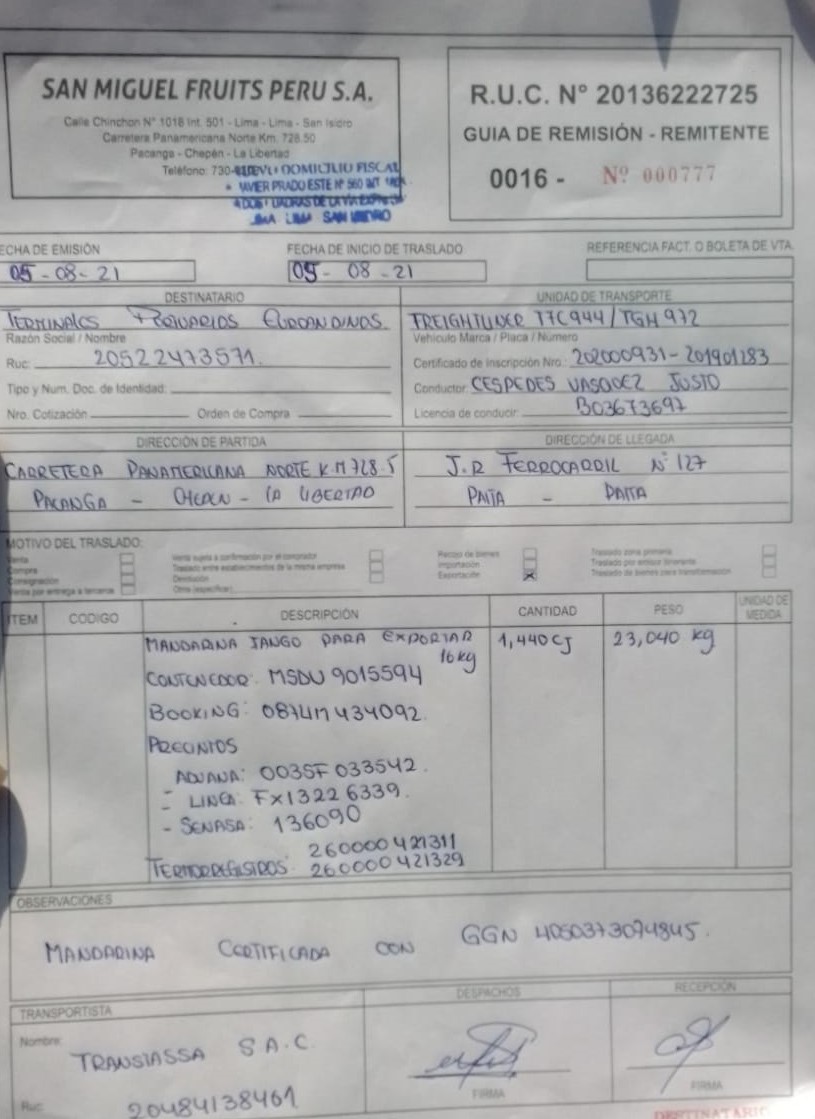 SAN MIGUEL FRUITS PERU S.A.
Calle Chinchon N° 1018 Int. 501 - Lima - Lima - San Isidro
Carretera Panamericana Norte Km. 728.50
Pacanga - Chepén - La Libertad
Teléfono: 730-
DOMICILIO FISCAL
JAVIER PRADO ESTE Nº 560 INT
LIMA LIMA SAN ISIDRO
R.U.C. N° 20136222725
GUIA DE REMISIÓN - REMITENTE
0016 - Nº 000777
ECHA DE EMISIÓN
05-08-21
FECHA DE INICIO DE TRASLADO
05-08-21
REFERENCIA FACT. O BOLETA DE VTA.
DESTINATARIO
TERMINALES PORTUARIOS EUROANDINOS
Razón Social / Nombre
Ruc: 20522473571.
Tipo y Num. Doc. de Identidad:
Nro. Cotización Orden de Compra
UNIDAD DE TRANSPORTE
FREIGHTLINER T7C944/TGH972
Vehículo Marca / Placa / Número
Certificado de Inscripción Nro.: 202000931-201901283
Conductor: CESPEDES VASQUEZ JUSTO
Licencia de conducir: B03673697
DIRECCIÓN DE PARTIDA
CARRETERA PANAMERICANA NORTE K.M 728.5
PACANGA - CHEPEN - LA LIBERTAD
DIRECCIÓN DE LLEGADA
J.R FERROCARRIL N° 127
PAITA - PAITA
MOTIVO DEL TRASLADO:
Venta
Compra
Consignación
Venta por entrega a terceros
Venta sujeta a confirmación por el comprador
Traslado entre establecimientos de la misma empresa
Devolución
Otros (especificar)
Recojo de bienes
Importación
Exportación X
Traslado zona primaria
Traslado por emisor itinerante
Traslado de bienes para transformación
ITEM CODIGO DESCRIPCIÓN CANTIDAD PESO UNIDAD DE MEDIDA
MANDARINA TANGO PARA EXPORTAR 1,440 CJ 23,040 kg
16kg
CONTENEDOR: MSDU 9015594
BOOKING: 087LM434092.
PRECINTOS
ADUANA: 003SF033542.
- LINEA: FX13226339.
- SENASA: 136090
260000421311
TERMORREGISTROS: 260000421329
OBSERVACIONES
MANDARINA CERTIFICADA CON GGN 4050373094845.
TRANSPORTISTA
Nombre: TRANSTASSA S.A.C.
Ruc: 20484138461
DESPACHOS
FIRMA
RECEPCIÓN
FIRMA
DESTINATARIO